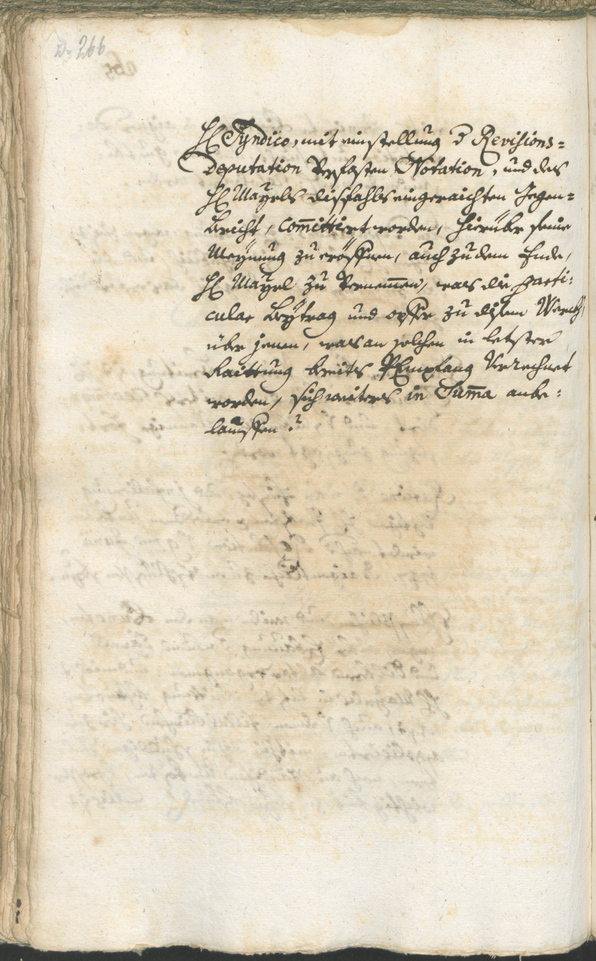 266
H: Syndico, mit einstellung d Revisions=
Deputation verfasten Notation, und des
H: Mayrls disfahls eingeraichten Gegen=
bericht, com̄ittiert worden, hierüber seine
Meynung zu eröffnen, auch zu dem Ende,
H: Mayrl zu vernem̄en, was die parti=
cular Beytrag und opffer zu disem Werch,
über jenen, was an solchen in letster
Raittung bereits Empfang verrechnet
worden, sich weiters in Sum̄a anbe=
lauffen?